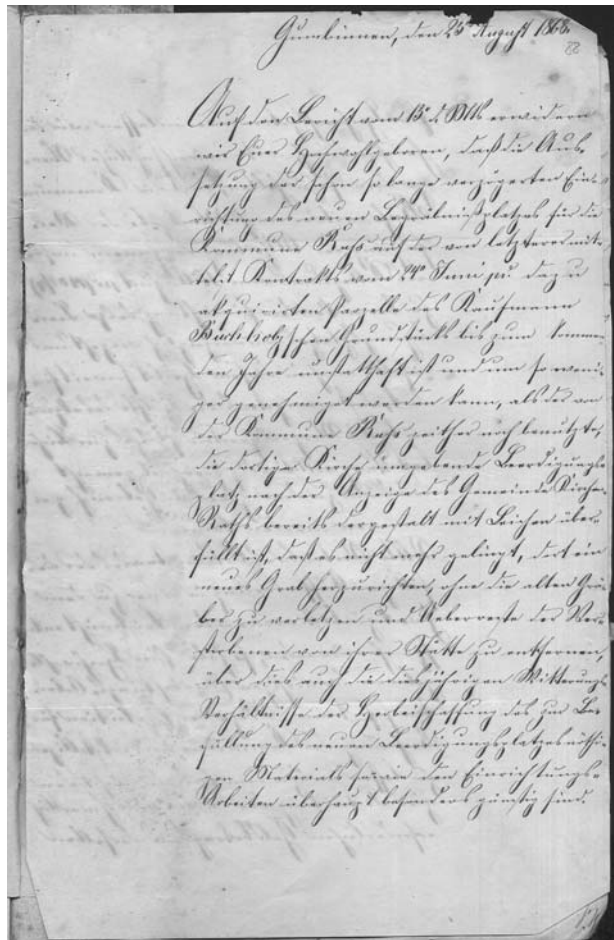 Gumbinnen, den 25t August 1868.
22
Auf den Bericht vom 13t d. Mts erwidern
wir Euer Hochwohlgeboren, daß die Aus-
setzung der schon so lange verzögerten Ein-
richtung des neuen Begräbnißplatzes für die
Kommune Ruß auf der von letzterer mit-
telst Kontrakts vom 24t Juni pr dazu
akquirirten Parzelle des Kaufmann
Buchholzschen Grundstücks bis zum kommen-
den Jahre unstatthaft ist und um so weni-
ger genehmigt werden kann, als der von
der Kommune Ruß zeither noch benutzte,
die dortige Kirche umgebende Beerdigungs-
platz nach der Anzeige des Gemeinde Kirchen
Raths bereits dergestalt mit Leichen über-
füllt ist, daß es nicht mehr gelingt, dort ein
neues Grab herzurichten, ohne die alten Grä-
ber zu verletzen und Ueberreste der Ver-
storbenen von ihrer Stätte zu entfernen,
über dies auch die diesjährigen Witterungs
Verhältnisse der Herbeischaffung des zur Be-
füllung des neuen Beerdigungsplatzes nöthi-
gen Materials sowie den Einrichtungs-
Arbeiten überhaupt besonders günstig sind.